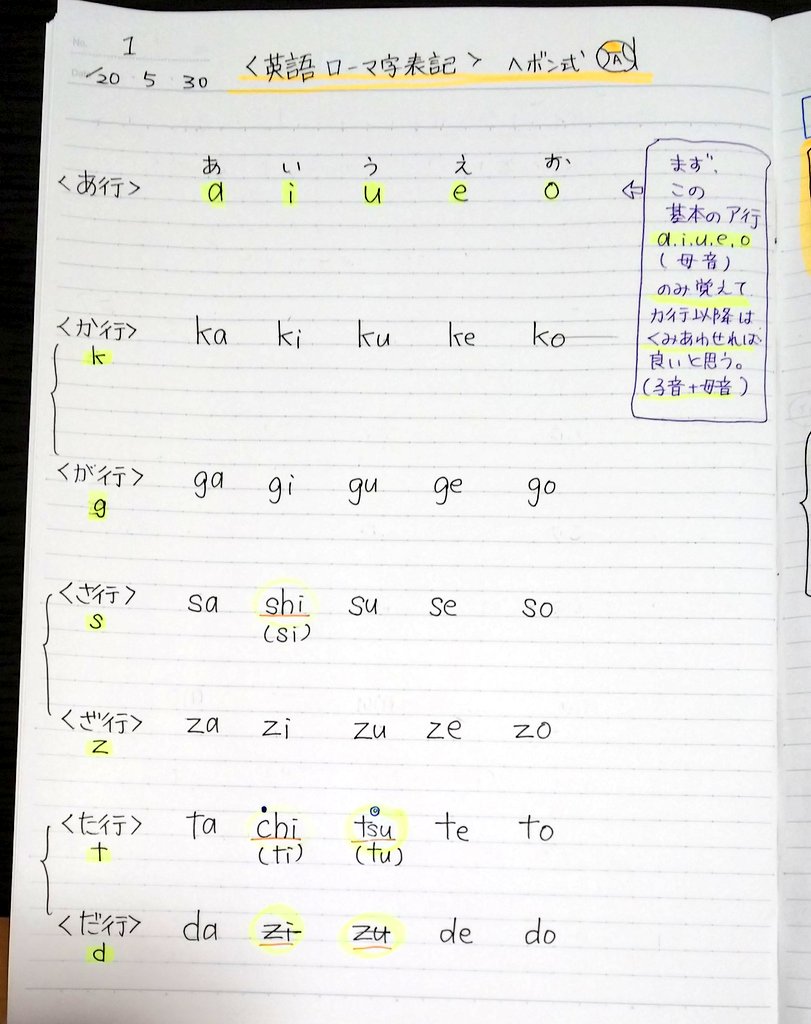 No. 1
'20 5 30
<英語 ローマ字表記> ヘボン式
あ い う え お
<あ行> a i u e o
まず、
この
基本のア行
a.i.u.e.o
(母音)
のみ覚えて
カ行以降は
くみあわせれば
良いと思う。
(子音+母音)
<か行> ka ki ku ke ko
k
<が行> ga gi gu ge go
g
<さ行> sa shi su se so
s (si)
<ざ行> za zi zu ze zo
z
<た行> ta chi tsu te to
t (ti) (tu)
<だ行> da zi zu de do
d